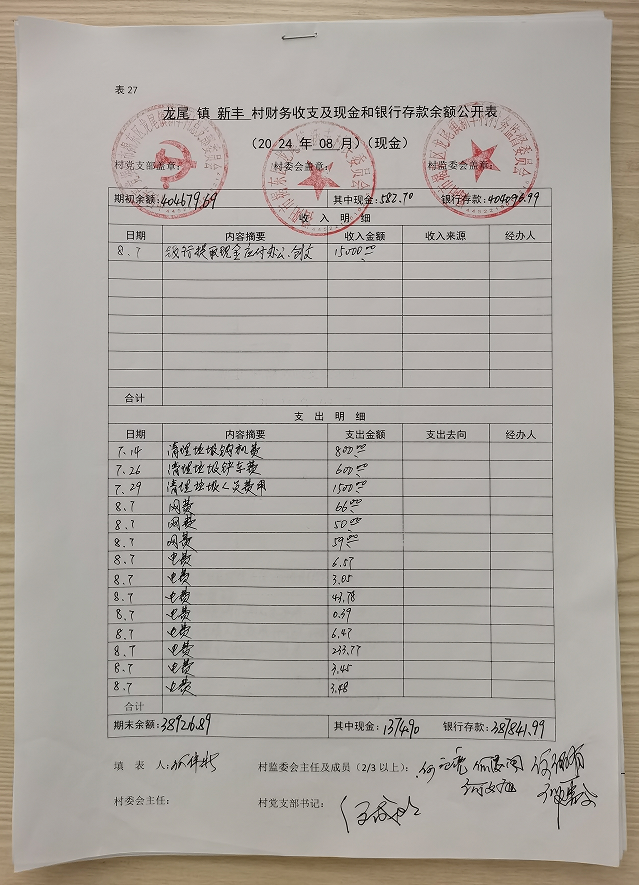 表 27
龙尾 镇 新丰 村财务收支及现金和银行存款余额公开表
(20 24 年 08 月) (现金)
村党支部盖章: 村委会盖章: 村监委会盖章:
期初余额:404679.69 其中现金:582.70 银行存款:404096.99
收 入 明 细
日期 内容摘要 收入金额 收入来源 经办人
8.7 银行提取现金应付办公.创文 15000.00
合计
支 出 明 细
日期 内容摘要 支出金额 支出去向 经办人
7.14 清理垃圾钩机费 800.00
7.26 清理垃圾铲车费 600.00
7.29 清理垃圾人员费用 1500.00
8.7 网费 66.00
8.7 网费 50.00
8.7 网费 59.00
8.7 电费 6.57
8.7 电费 3.05
8.7 电费 43.78
8.7 电费 0.39
8.7 电费 6.47
8.7 电费 233.77
8.7 电费 3.45
8.7 电费 3.48
合计
期末余额:38926.89 其中现金:1374.90 银行存款:387841.99
填 表 人: 村监委会主任及成员(2/3以上):
村委会主任: 村党支部书记: